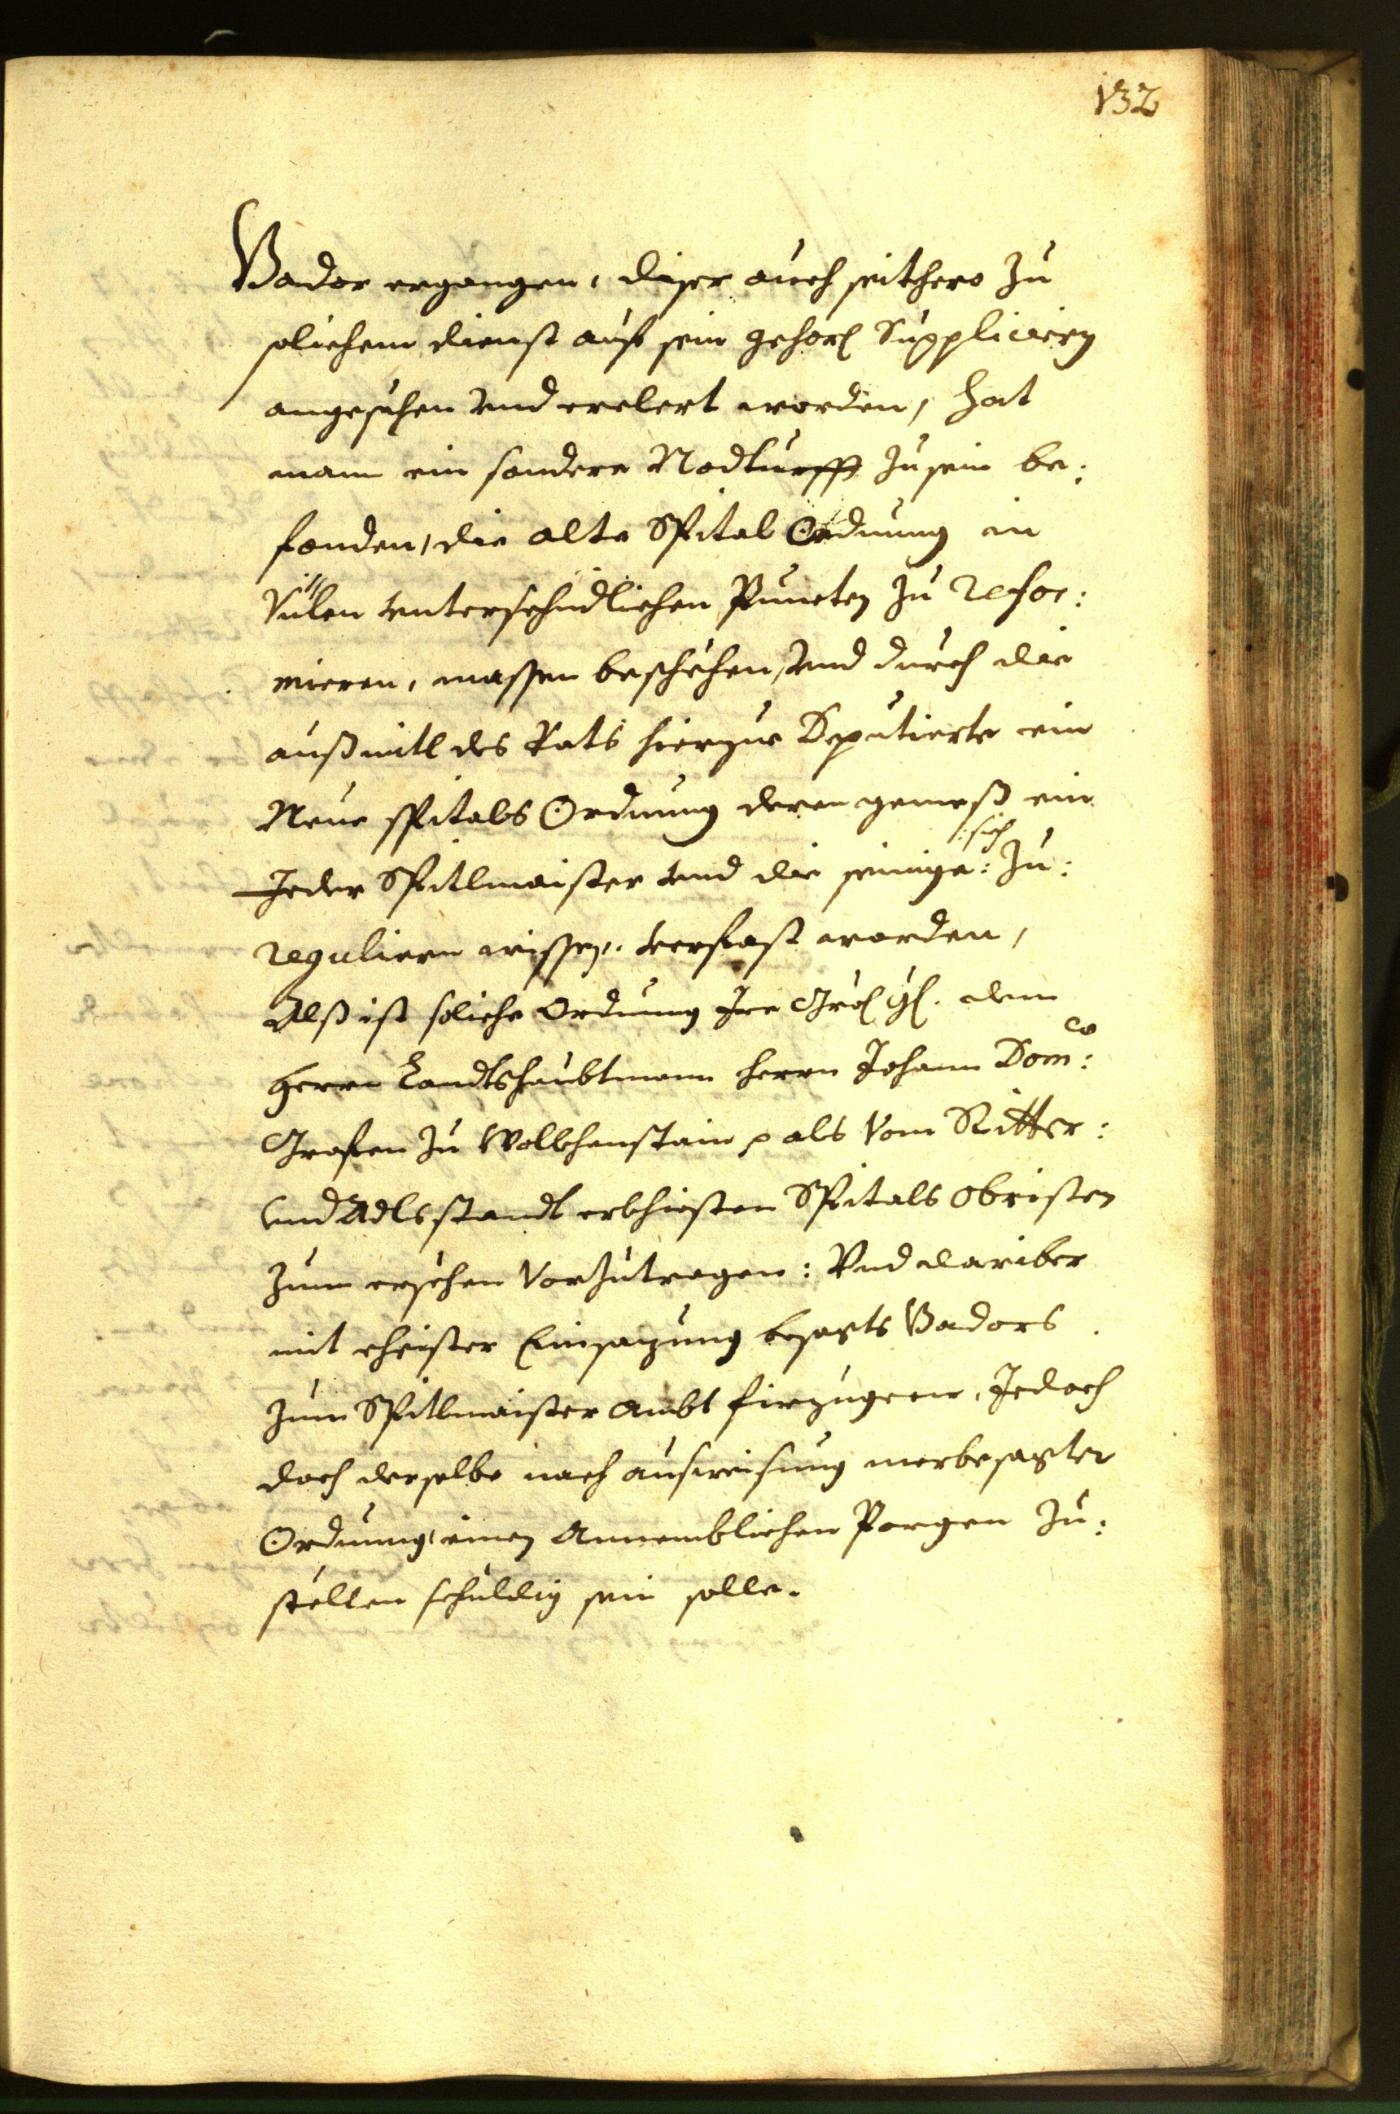 132
Bador ergangen, diser auch seithero zu
solichem dienst auf sein gehorß Suppliciern
angesehen vnd erclert worden, hat
mann ein sondere Nodturfft zusein be:
fonden, die alte Spital Ordnung in
Vilen vnterschidlichen Puncten zu refor:
mieren, massen beschehen, vnd durch die
außmitl des Rats hierzue Deputierte ein
Neue spitals Ordnung deren gemeß ein
:sich
Jeder Spitlmaister vnd die seinige: zu:
regulieren wissen. verfast worden,
Alß ist soliche Ordnung Ire Gräf. Gl. dem
Herrn Landtshaubtmann herrn Johann Dom:co
Grafen zu Wolkhenstain p als vom Ritter:
vnd Adlsstandt erkhiesten Spitals Obristen
zum ersehen vorzutragen: Vnd dariber
mit eheister Einsazung besagts Badors
zum Spitlmaister Ambt firzugeen. Jedoch
doch derselbe nach ausweisung merbesagter
Ordnung, einen Annemblichen Porgen zu:
stellen schuldig sein solle.